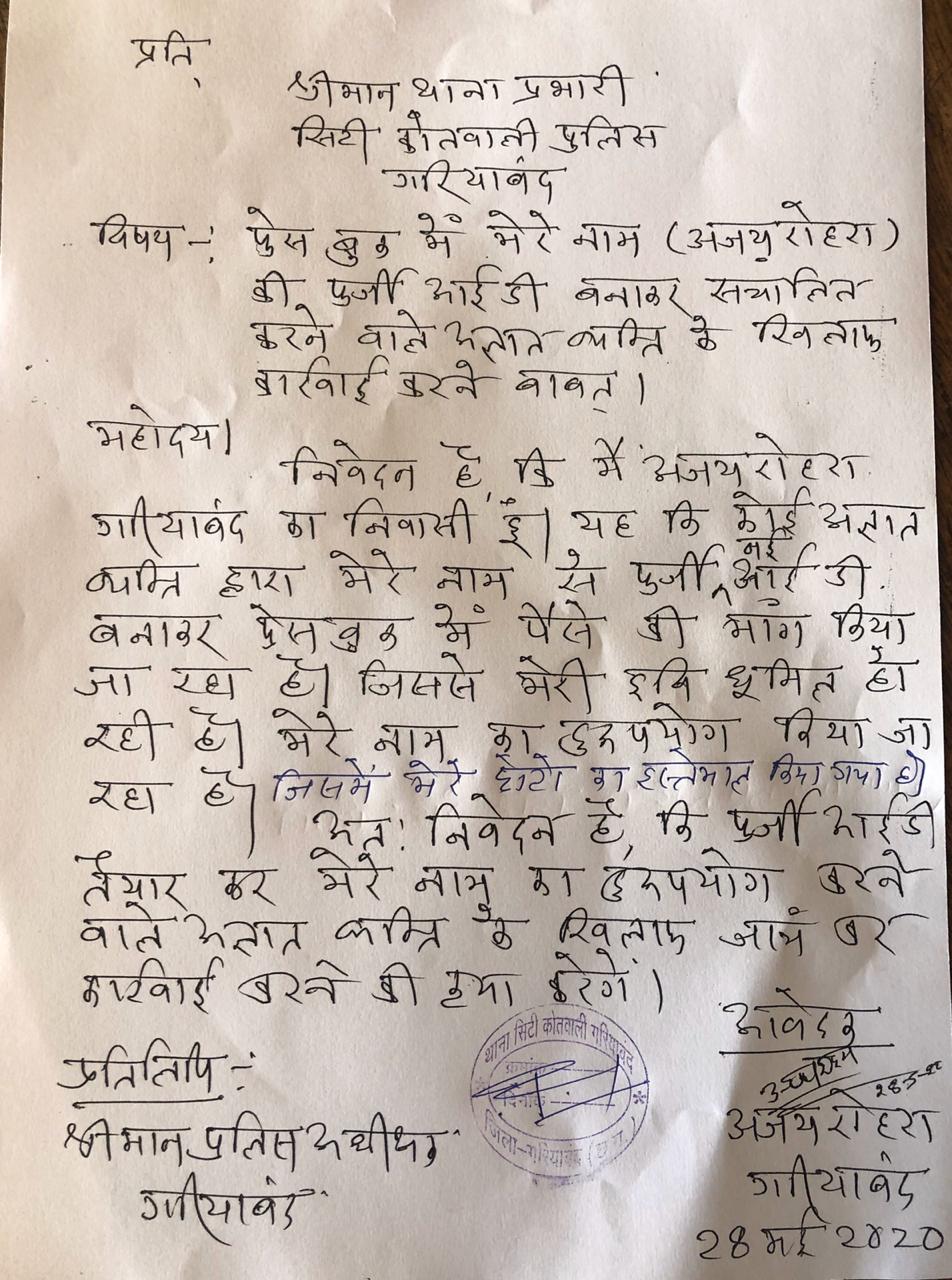 प्रति,
श्रीमान थाना प्रभारी
सिटी कोतवाली पुलिस
गरियाबंद
विषय -: फेस बुक में मेरे नाम (अजय रोहरा)
की फर्जी आई डी बनाकर सचालित
करने वाले अज्ञात व्यक्ति के खिलाफ
कार्रवाई करने बाबत् ।
महोदय।
निवेदन है, कि मैं अजय रोहरा
गरियाबंद का निवासी हूं। यह कि कोई अज्ञात
व्यक्ति द्वारा मेरे नाम से फर्जी नई आई डी
बनाकर फेसबुक में पैसे की मांग किया
जा रहा है। जिससे मेरी छवि धूमिल हो
रही है। मेरे नाम का दुरूपयोग किया जा
रहा है। जिसमें मेरे फोटो का इस्तेमाल किया गया है।
अतः निवेदन है, कि फर्जी आईडी
तैयार कर मेरे नाम का दुरूपयोग करने
वाले अज्ञात व्यक्ति के खिलाफ जांच कर
कार्रवाई करने की कृपा करेगें ।
आवेदक
प्रतिलिपि -:
थाना सिटी कोतवाली गरियाबंद
क्रमांक
दिनांक
जिला-गरियाबंद (छ.ग.)
अजय रोहरा
श्रीमान पुलिस अधीक्षक
गरियाबंद
गरियाबंद
28 मई 2020